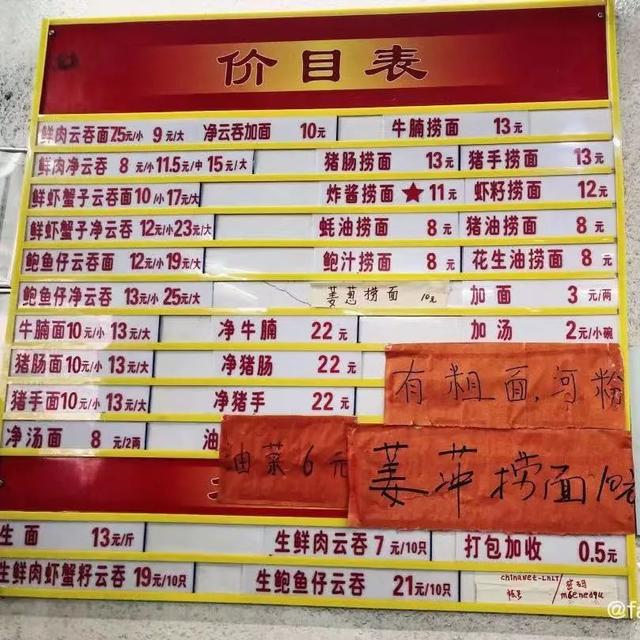 价目表
鲜肉云吞面7.5元/小 9元/大 净云吞加面 10元 牛腩捞面 13元
鲜肉净云吞 8元/小11.5元/中15元/大 猪肠捞面 13元 猪手捞面 13元
鲜虾蟹子云吞面10/小17元/大 炸酱捞面★11元 虾籽捞面 12元
鲜虾蟹子净云吞 12元/小23元/大 蚝油捞面 8元 猪油捞面 8元
鲍鱼仔云吞面 12元/小19元/大 鲍汁捞面 8元 花生油捞面 8元
鲍鱼仔净云吞 13元/小25元/大 姜葱捞面 10元 加面 3元/两
牛腩面10元/小13元/大 净牛腩 22元 加汤 2元/小碗
猪肠面10元/小13元/大 净猪肠 22元
有粗面,河粉
猪手面10元/小13元/大 净猪手 22元
净汤面 8元/2两 油
油菜6元
姜葱捞面10元
生面 13元/斤 生鲜肉云吞7元/10只 打包加收 0.5元
生鲜肉虾蟹籽云吞 19元/10只 生鲍鱼仔云吞 21元/10只
chinanet-LhLT
帐号
密码
m6ened9u
@fa